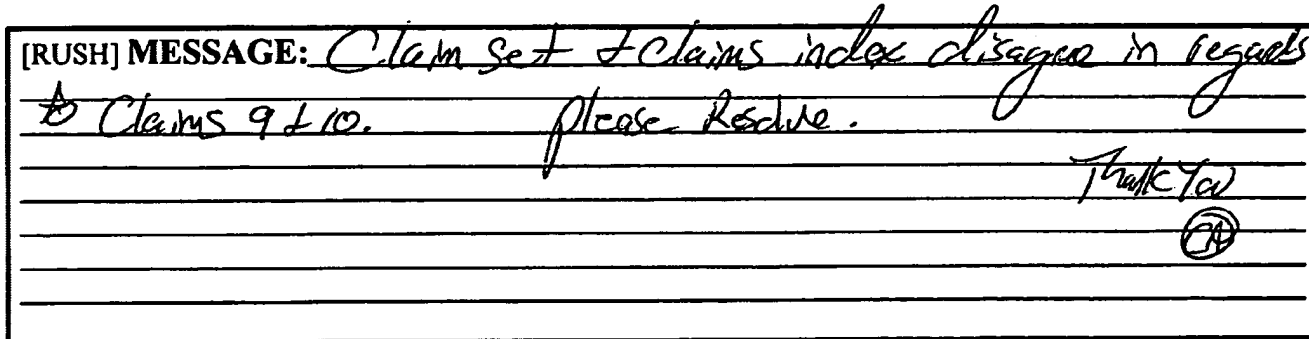 [RUSH] MESSAGE: Claim set & Claims index disagree in regards
to Claims 9 & 10. please Resolve.
Thank You
CA